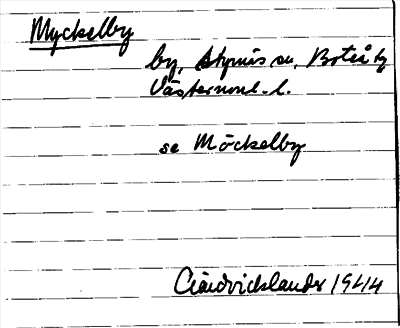 Myckelby
by, Styrnäs sn, Boteå tg
Västernorrl. l.
se Möckelby
Cändvicklander 1944